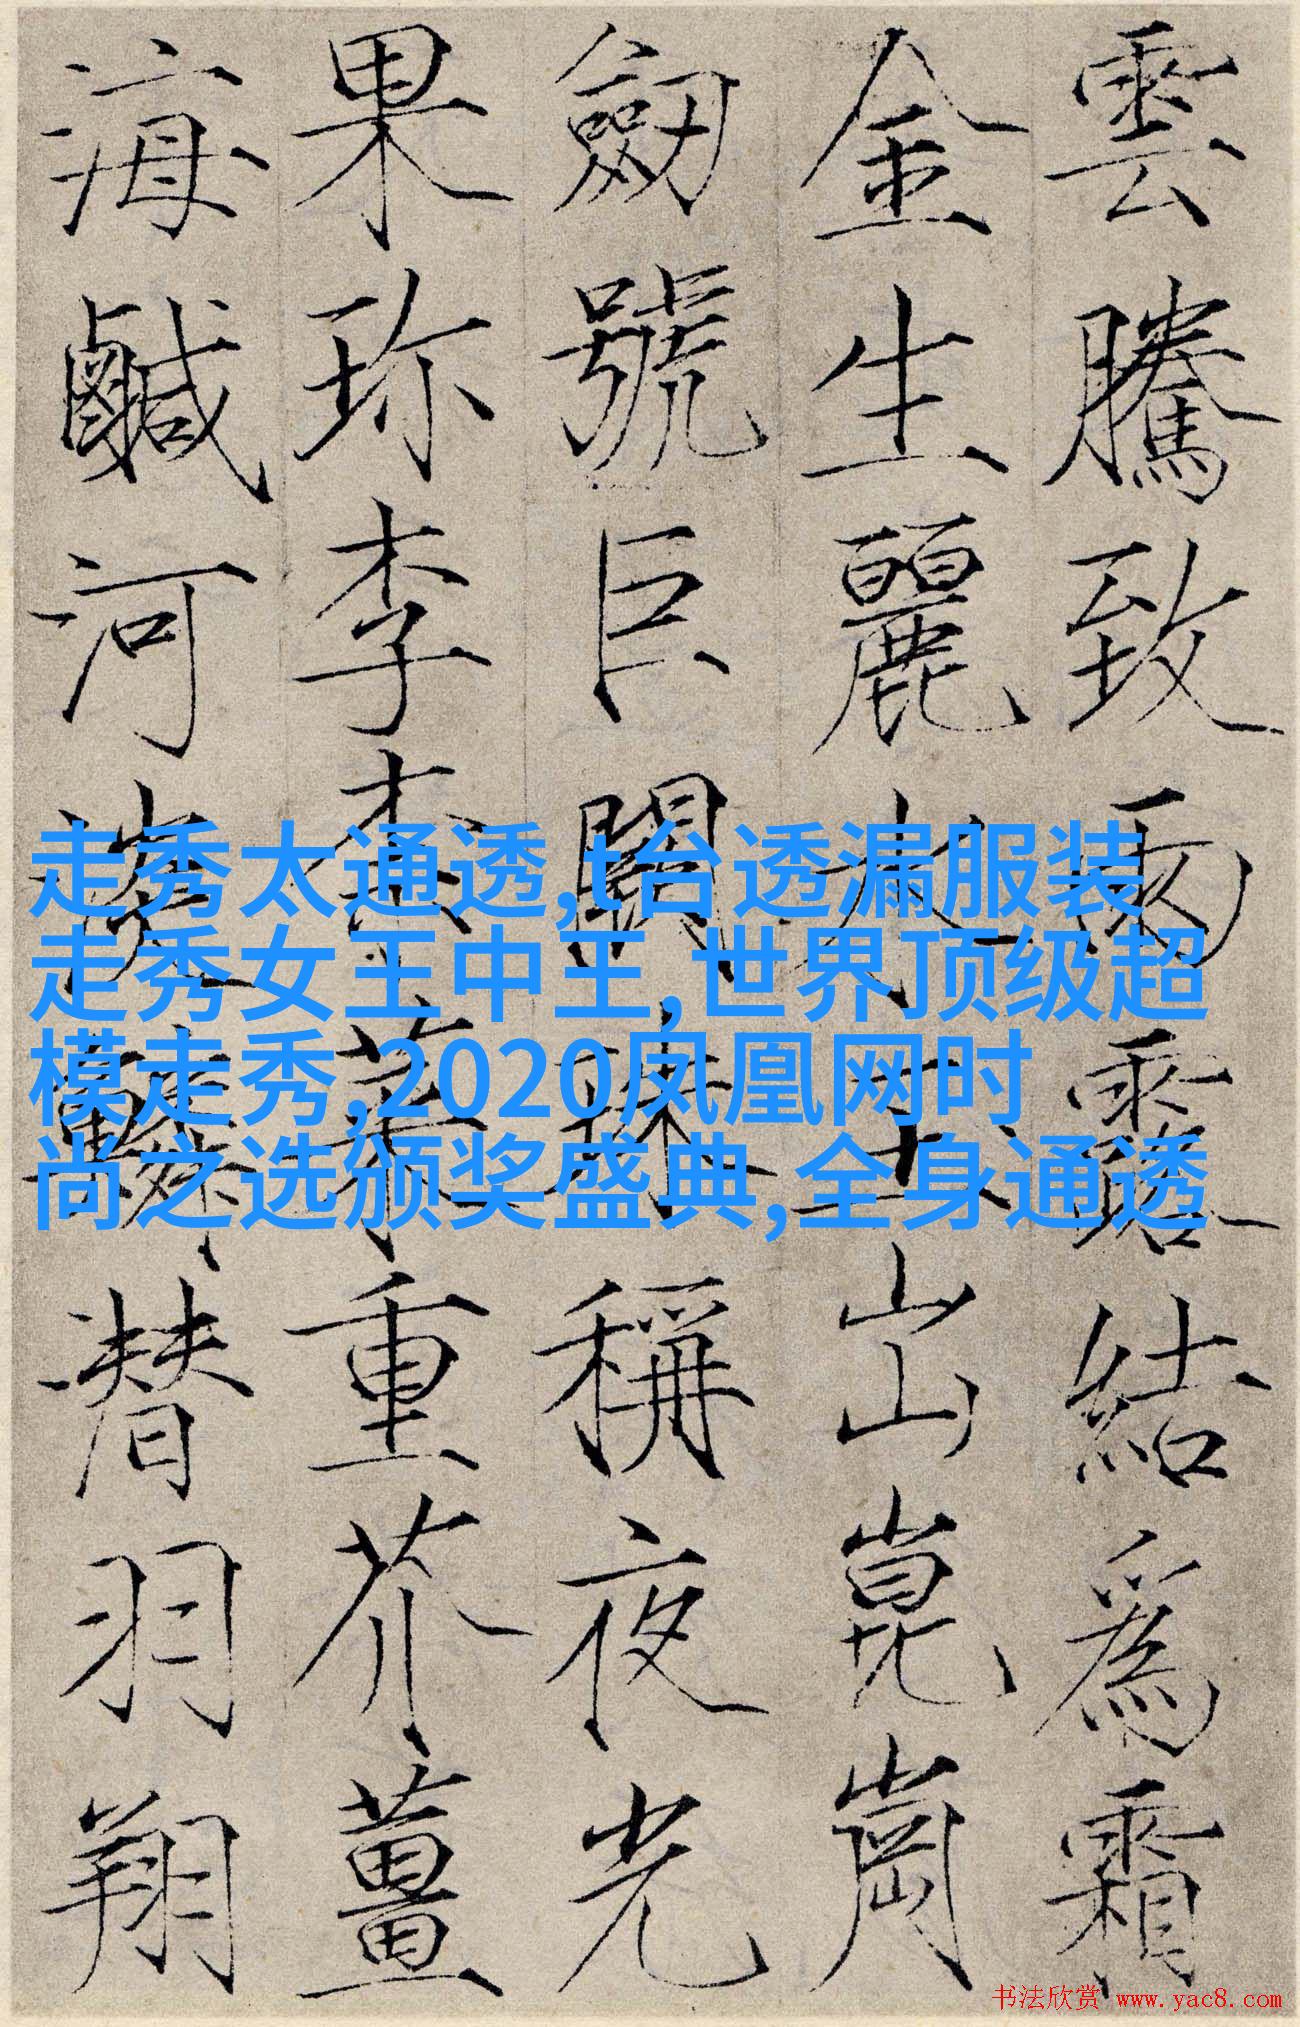 雲騰致雨露結爲霜
金生麗水玉出崑崗
劒號巨闕珠稱夜光
果珎李柰菜重芥薑
海鹹河淡鱗潛羽翔
走秀太通透,t台透漏服装
走秀女王中王,世界顶级超
模走秀,2020凤凰网时
尚之选颁奖盛典,全身通透
书法欣赏 www.yac8.com